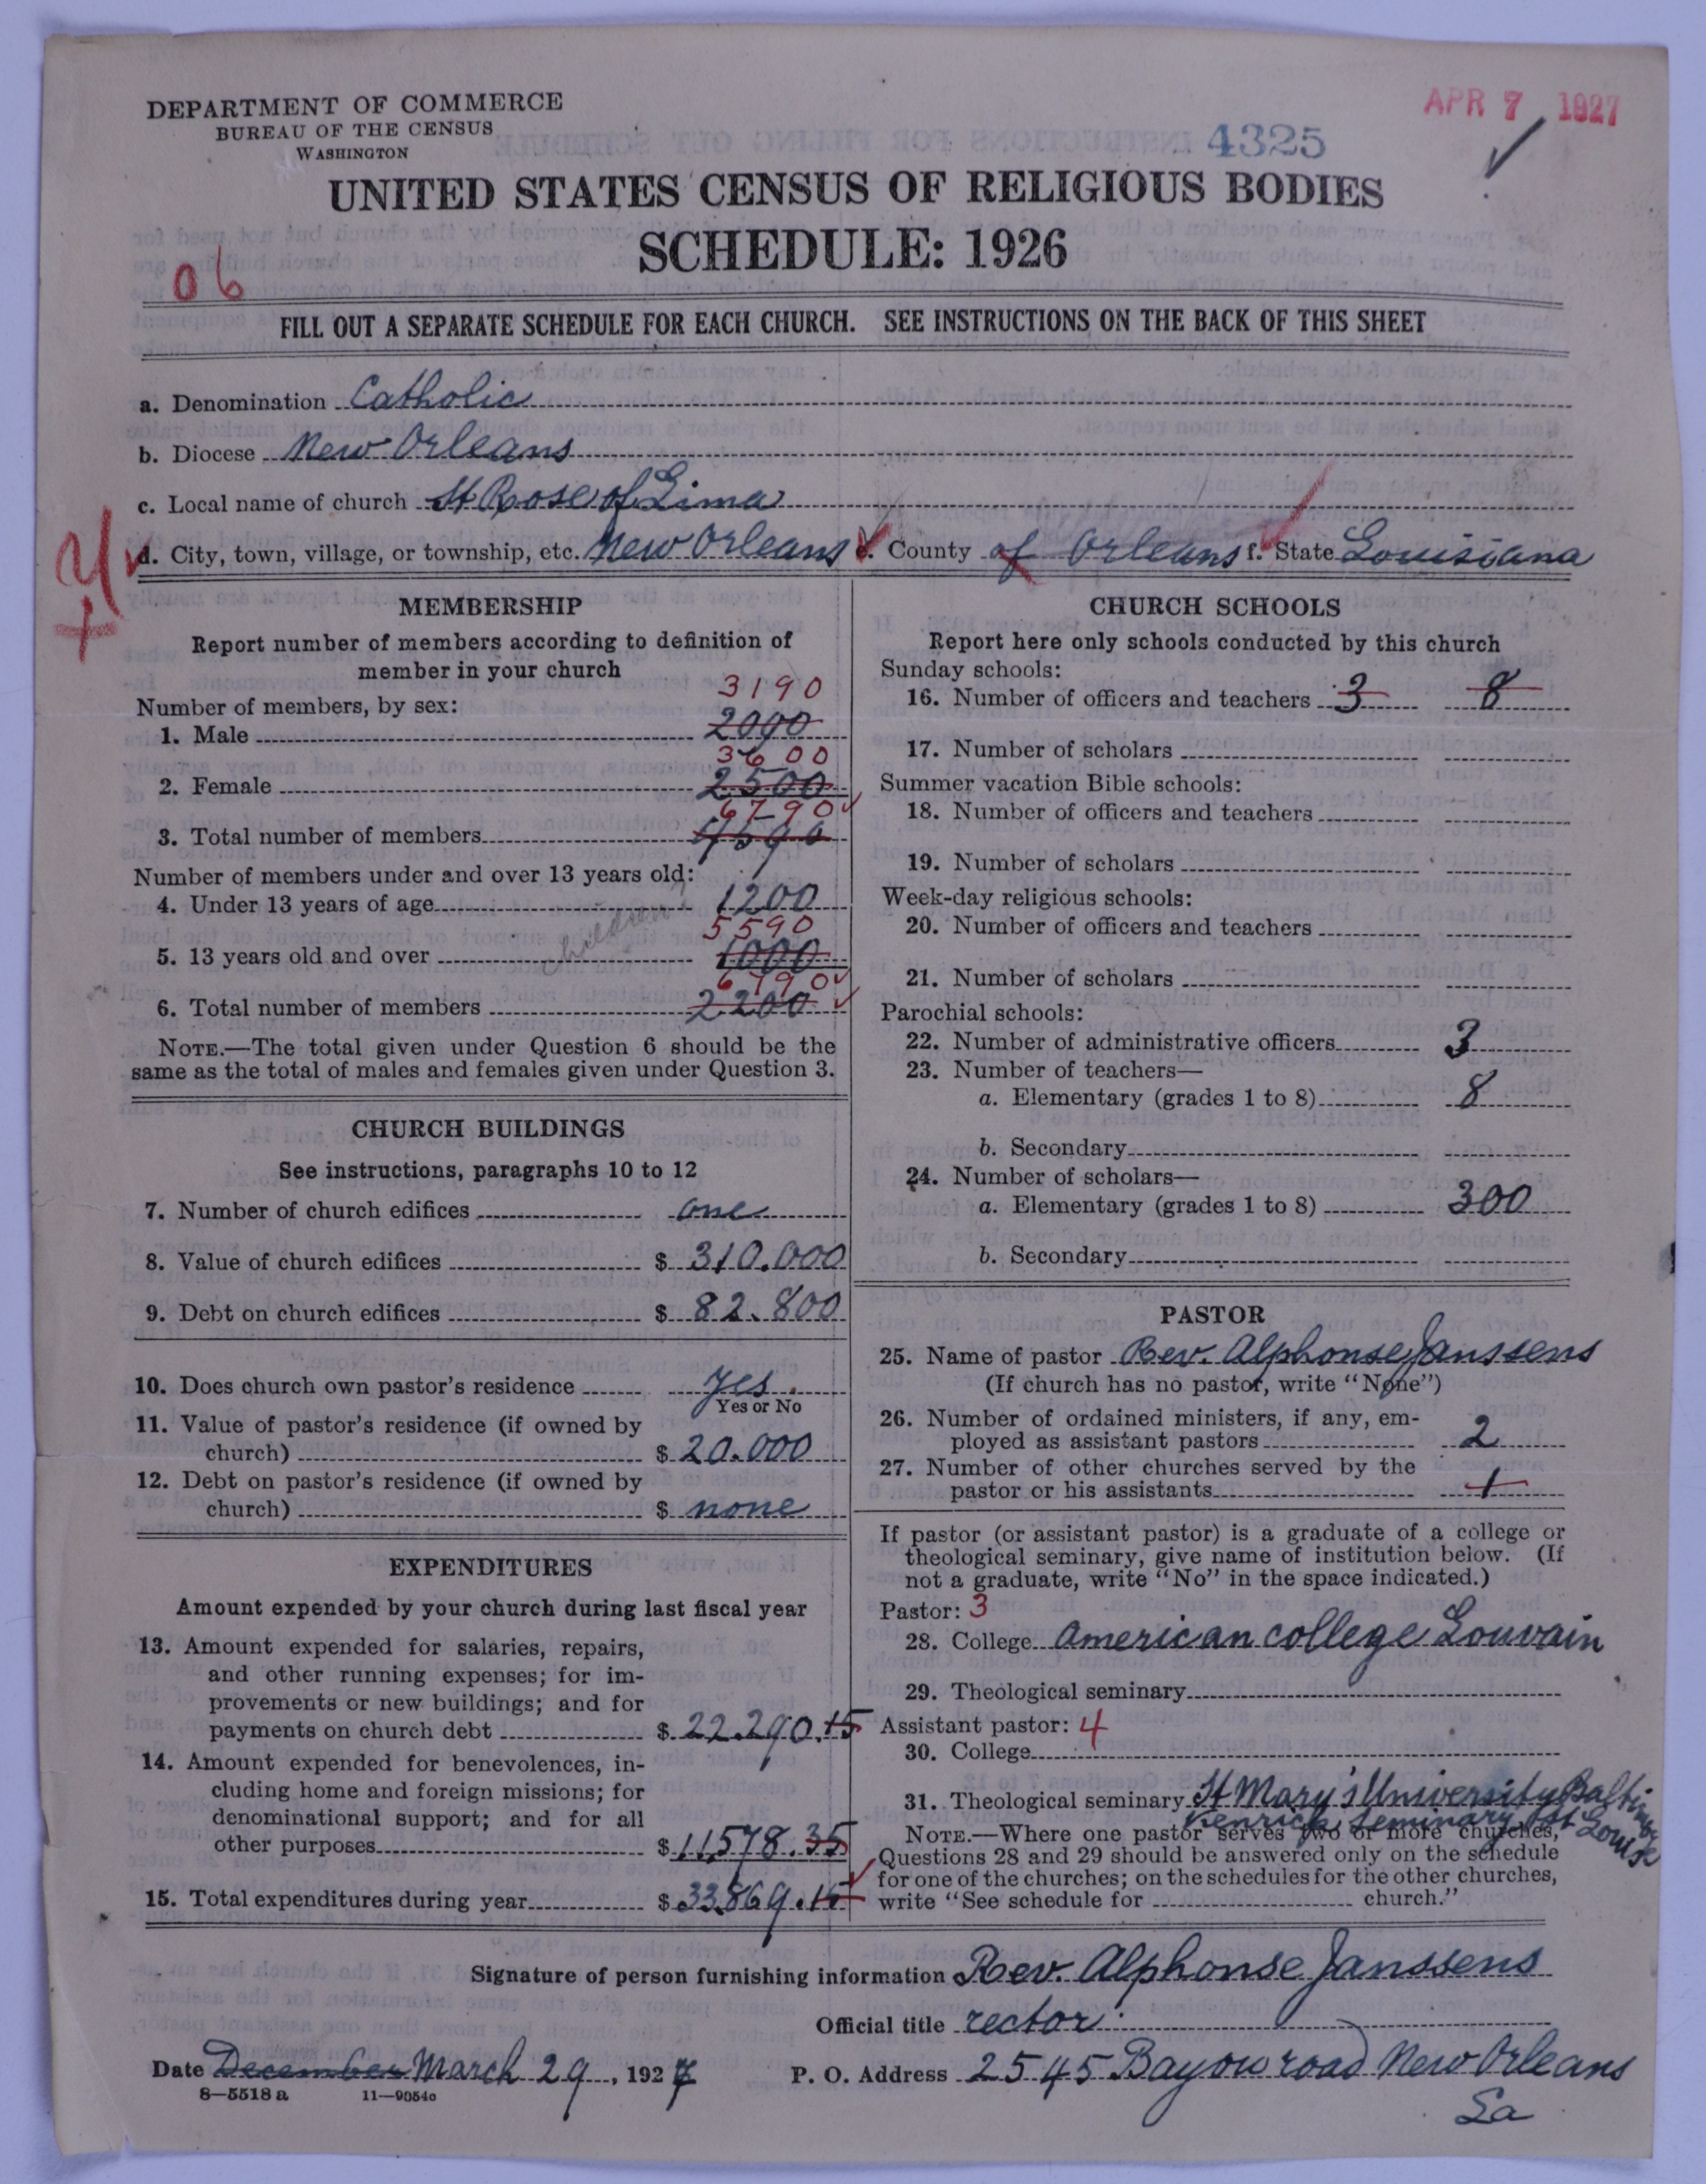 DEPARTMENT OF COMMERCE
BUREAU OF THE CENSUS
WASHINGTON
APR 7 1927
4325
UNITED STATES CENSUS OF RELIGIOUS BODIES
SCHEDULE: 1926
06
FILL OUT A SEPARATE SCHEDULE FOR EACH CHURCH. SEE INSTRUCTIONS ON THE BACK OF THIS SHEET
a. Denomination Catholic
b. Diocese New Orleans
c. Local name of church St Rose of Lima
d. City, town, village, or township, etc. New Orleans e. County of Orleans f. State Louisiana
MEMBERSHIP
Report number of members according to definition of
member in your church
Number of members, by sex:
3190
1. Male 2090
3600
2. Female 2500
6790
3. Total number of members 4590
Number of members under and over 13 years old:
4. Under 13 years of age 1200
children
5590
5. 13 years old and over 1000
6790
6. Total number of members 2200
NOTE.—The total given under Question 6 should be the
same as the total of males and females given under Question 3.
CHURCH BUILDINGS
See instructions, paragraphs 10 to 12
7. Number of church edifices one
8. Value of church edifices $ 310.000
9. Debt on church edifices $ 82.800
10. Does church own pastor's residence yes.
Yes or No
11. Value of pastor's residence (if owned by
church) $ 20.000
12. Debt on pastor's residence (if owned by
church) $ none
EXPENDITURES
Amount expended by your church during last fiscal year
13. Amount expended for salaries, repairs,
and other running expenses; for im-
provements or new buildings; and for
payments on church debt $ 22.290.15
14. Amount expended for benevolences, in-
cluding home and foreign missions; for
denominational support; and for all
other purposes $ 11578.35
15. Total expenditures during year $ 33.869.15
CHURCH SCHOOLS
Report here only schools conducted by this church
Sunday schools:
16. Number of officers and teachers 3 8
17. Number of scholars
Summer vacation Bible schools:
18. Number of officers and teachers
19. Number of scholars
Week-day religious schools:
20. Number of officers and teachers
21. Number of scholars
Parochial schools:
22. Number of administrative officers 3
23. Number of teachers—
a. Elementary (grades 1 to 8) 8
b. Secondary
24. Number of scholars—
a. Elementary (grades 1 to 8) 300
b. Secondary
PASTOR
25. Name of pastor Rev. Alphonse Janssens
(If church has no pastor, write "None")
26. Number of ordained ministers, if any, em-
ployed as assistant pastors 2
27. Number of other churches served by the
pastor or his assistants 1
If pastor (or assistant pastor) is a graduate of a college or
theological seminary, give name of institution below. (If
not a graduate, write "No" in the space indicated.)
Pastor: 3
28. College American college Louvain
29. Theological seminary
Assistant pastor: 4
30. College
31. Theological seminary St Mary's University Baltimore
Kenrick Seminary St Louis
NOTE.—Where one pastor serves two or more churches,
Questions 28 and 29 should be answered only on the schedule
for one of the churches; on the schedules for the other churches,
write "See schedule for church."
Signature of person furnishing information Rev. Alphonse Janssens
Official title rector
Date December March 29, 1927 P. O. Address 2545 Bayou road New Orleans
La
8—5518 a 11—9054c